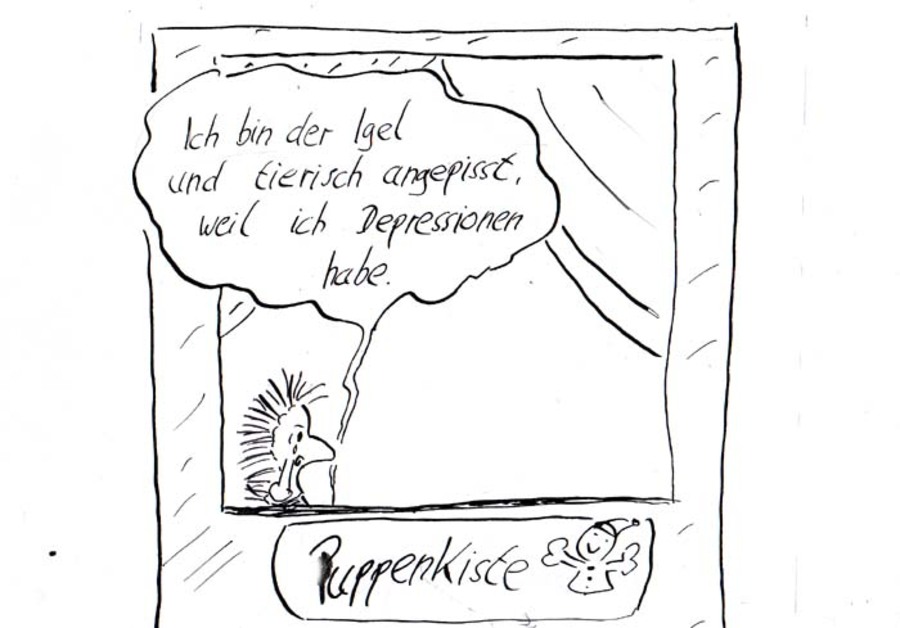 Ich bin der Igel
und tierisch angepisst,
weil ich Depressionen
habe.
Puppenkiste